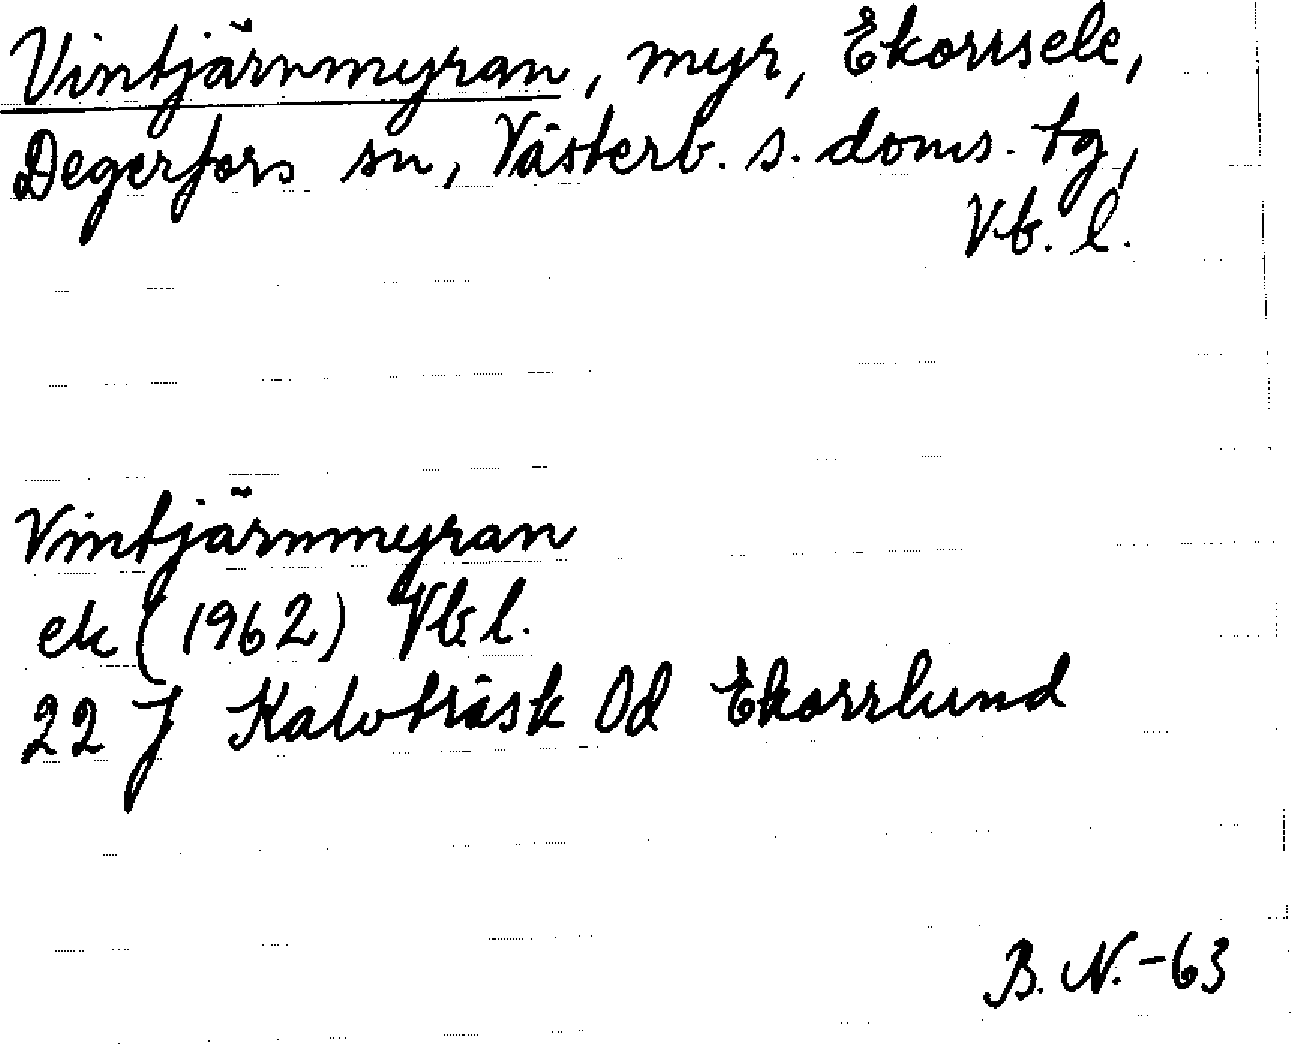 Vintjärnmyran, myr, Ekorrsele,
Degerfors sn, Västerb. s. doms. tg,
Vb. l.
Vintjärnmyran
ek (1962) Vb. l.
22 J Kalvträsk Od Ekorrlund
B. N. -63